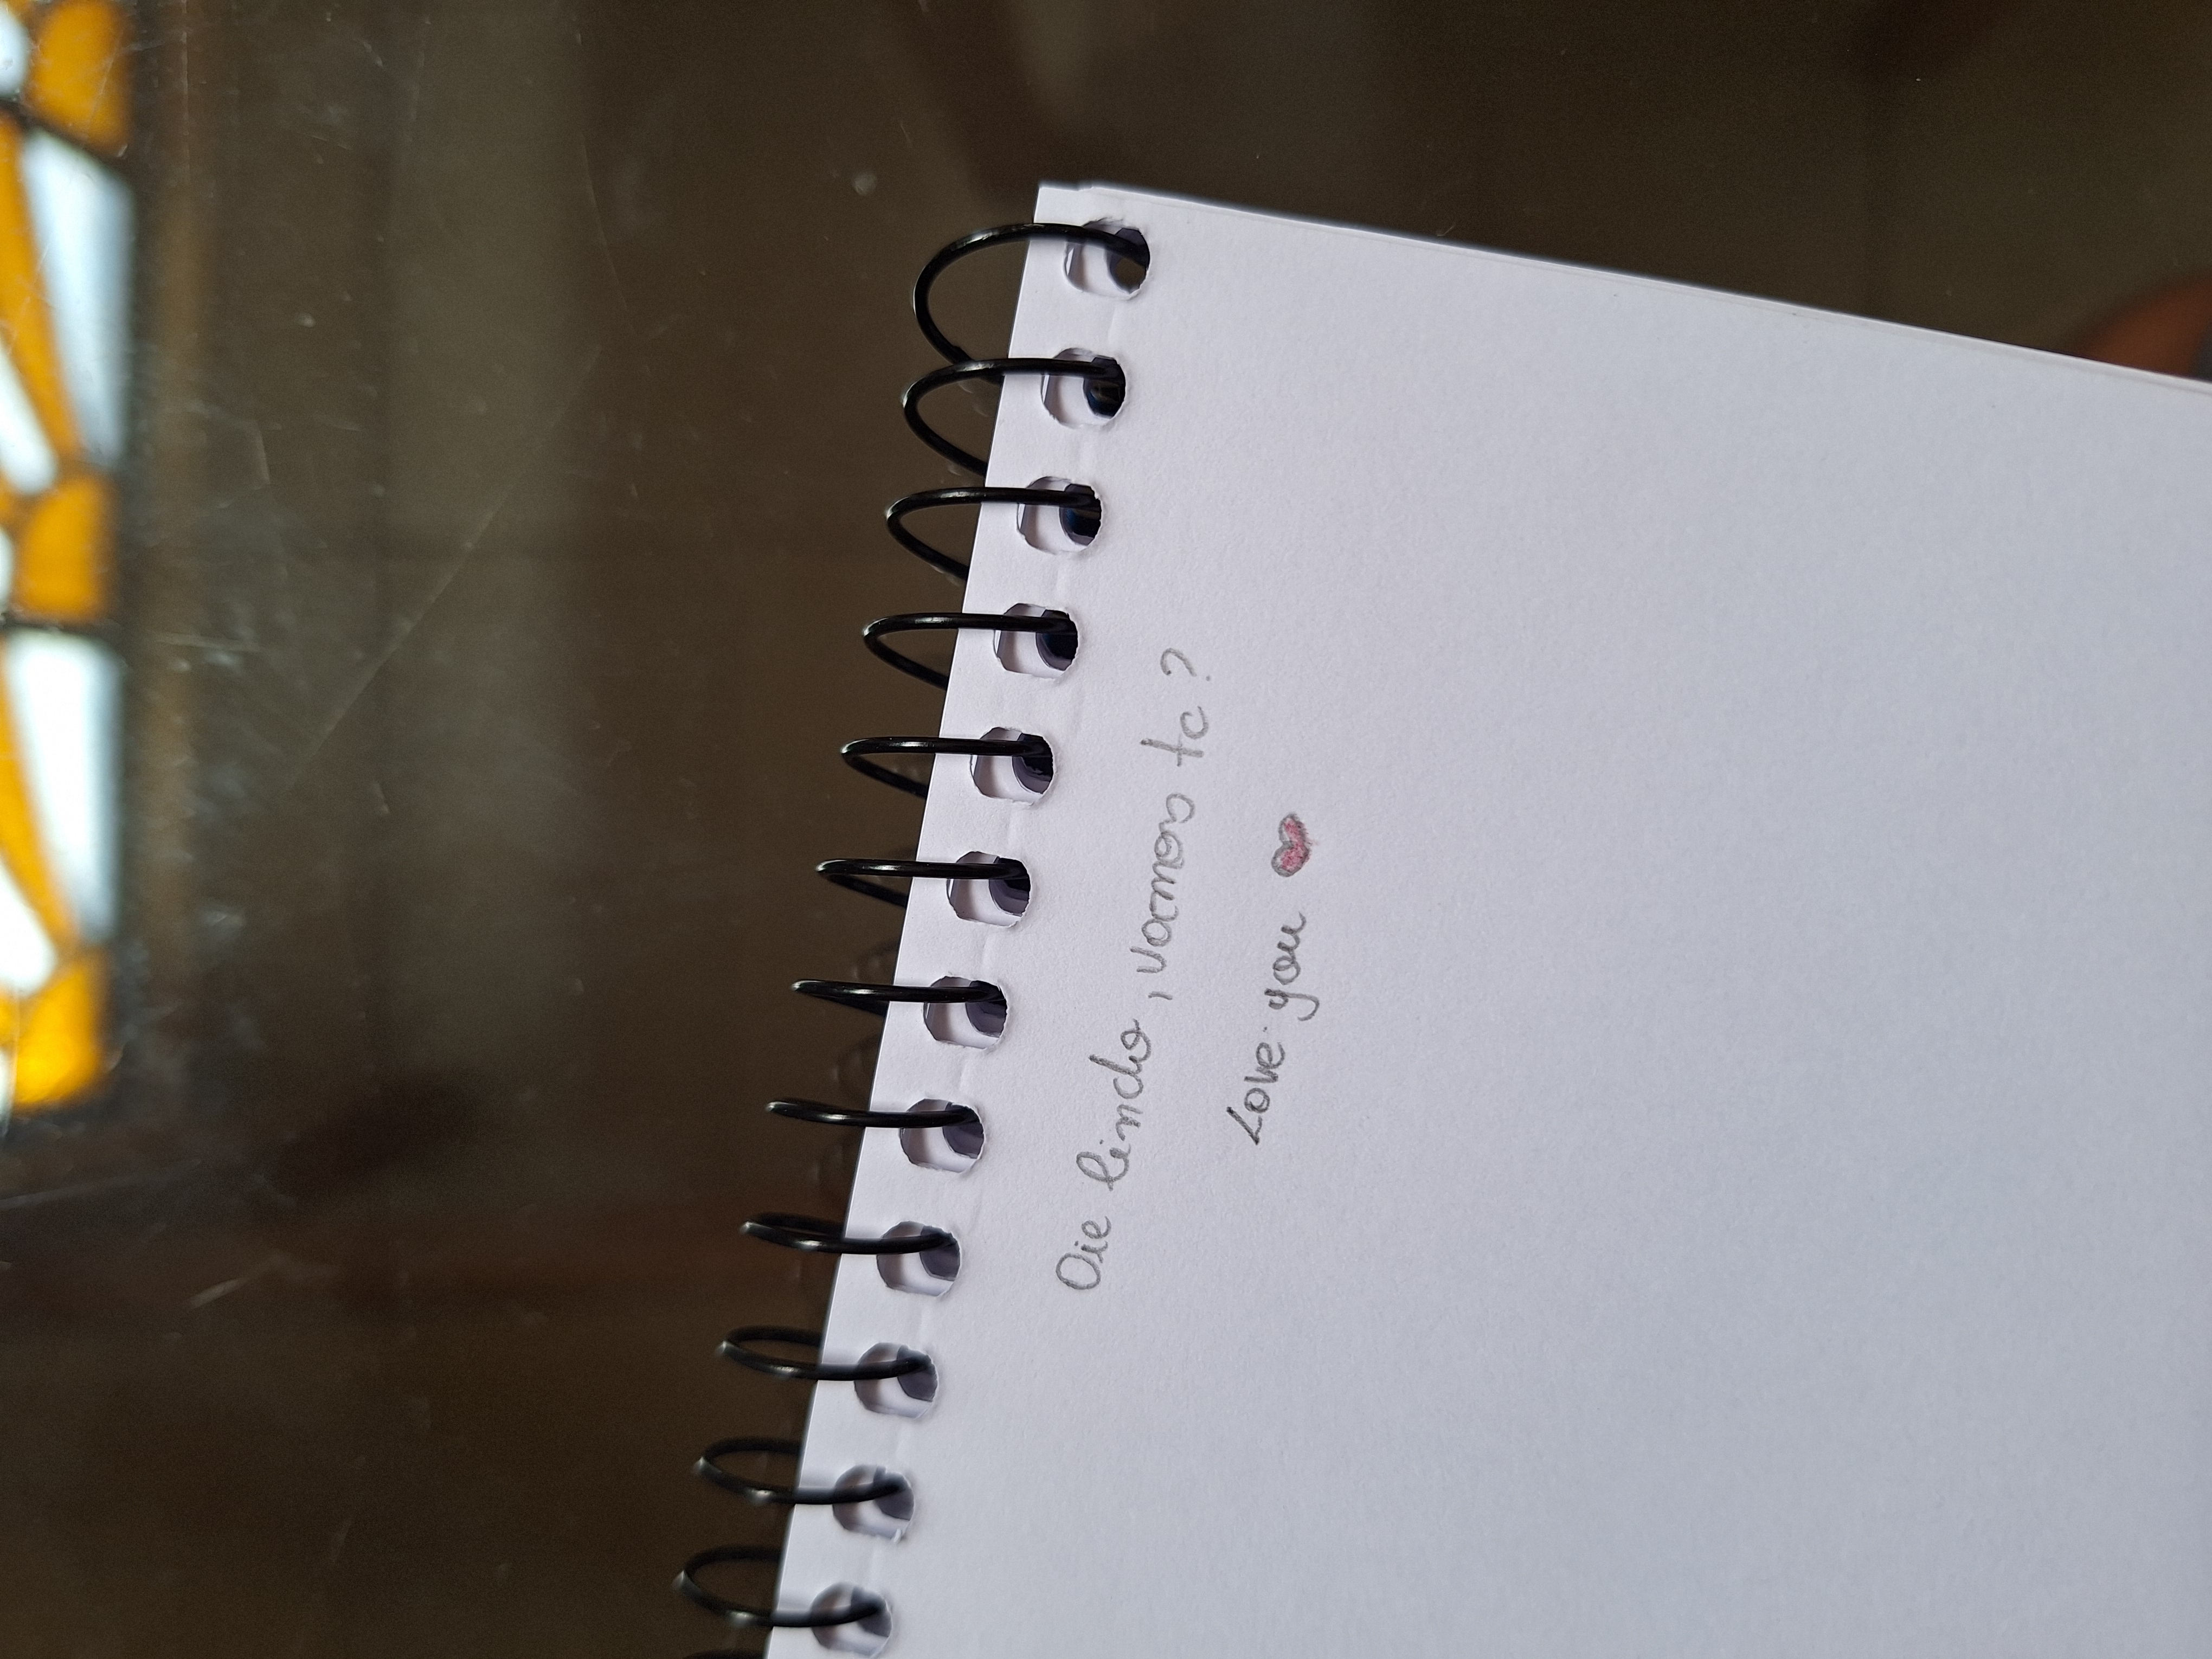 Oie lindo, vamos tc?
Love you ♥